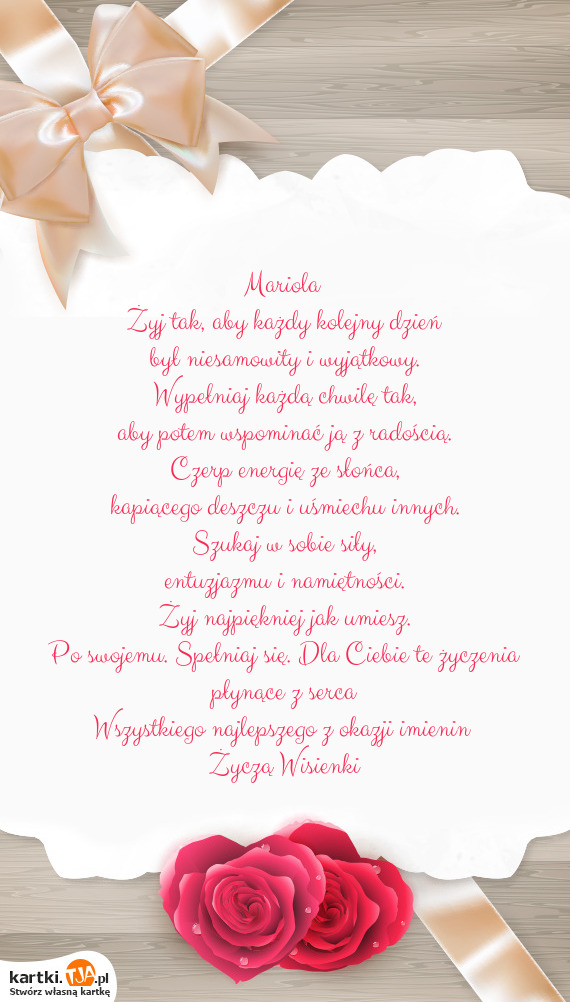 Mariola
Żyj tak, aby każdy kolejny dzień
był niesamowity i wyjątkowy.
Wypełniaj każdą chwilę tak,
aby potem wspominać ją z radością.
Czerp energię ze słońca,
kapiącego deszczu i uśmiechu innych.
Szukaj w sobie siły,
entuzjazmu i namiętności.
Żyj najpiękniej jak umiesz.
Po swojemu. Spełniaj się. Dla Ciebie te życzenia
płynące z serca
Wszystkiego najlepszego z okazji imienin
Życzą Wisienki
kartki.TJA.pl
Stwórz własną kartkę